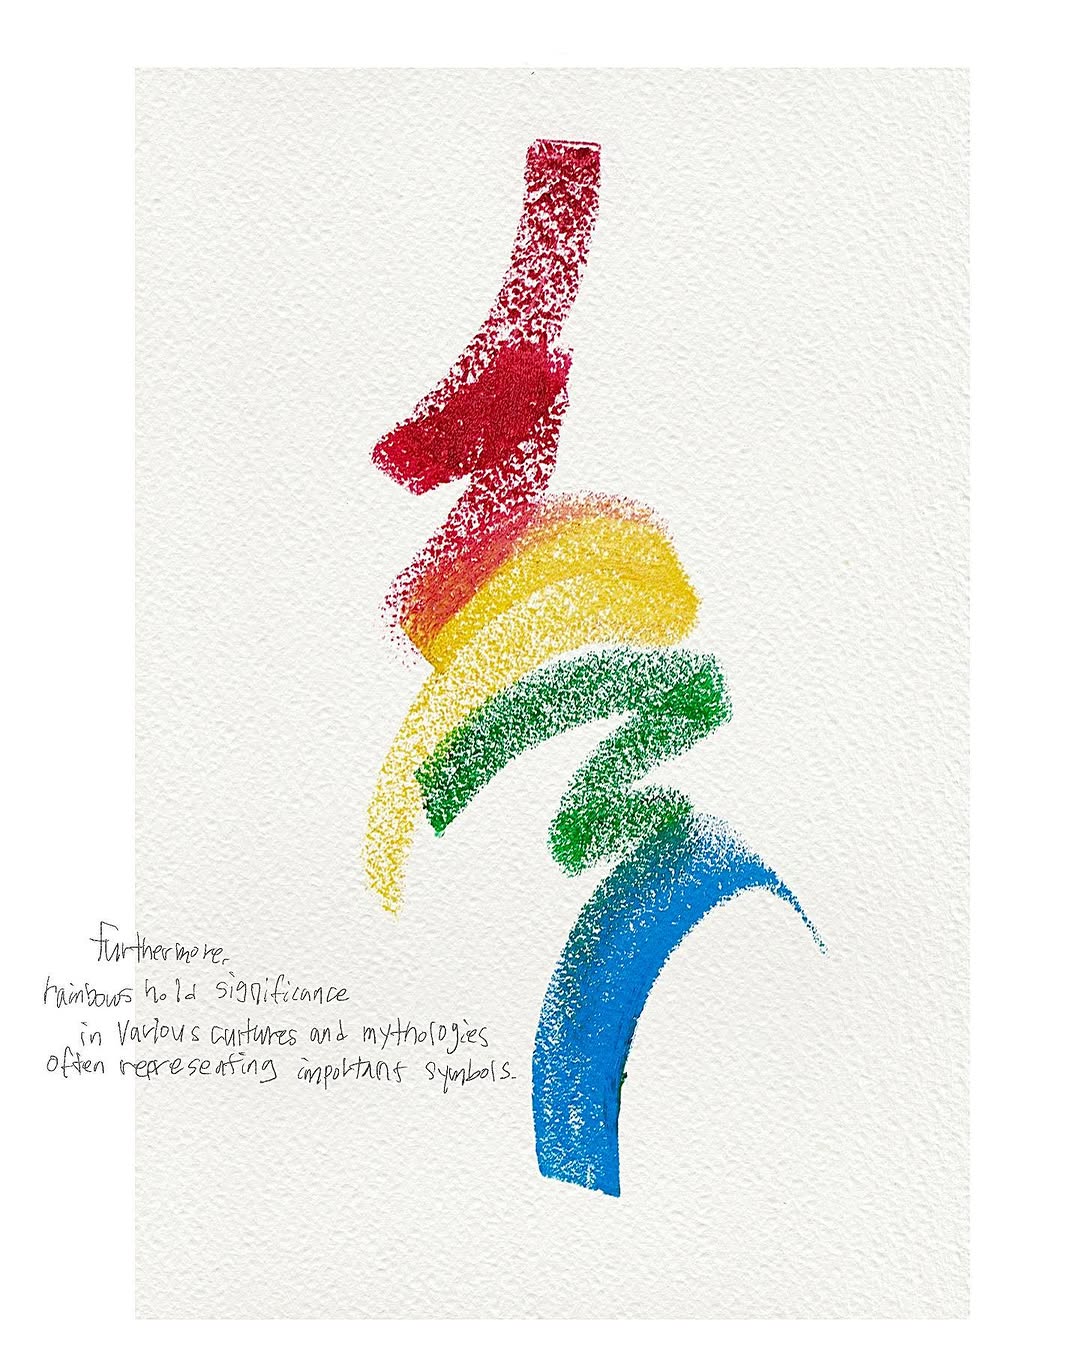 Furthermore,
rainbows hold significance
in various cultures and mythologies
often representing important symbols.